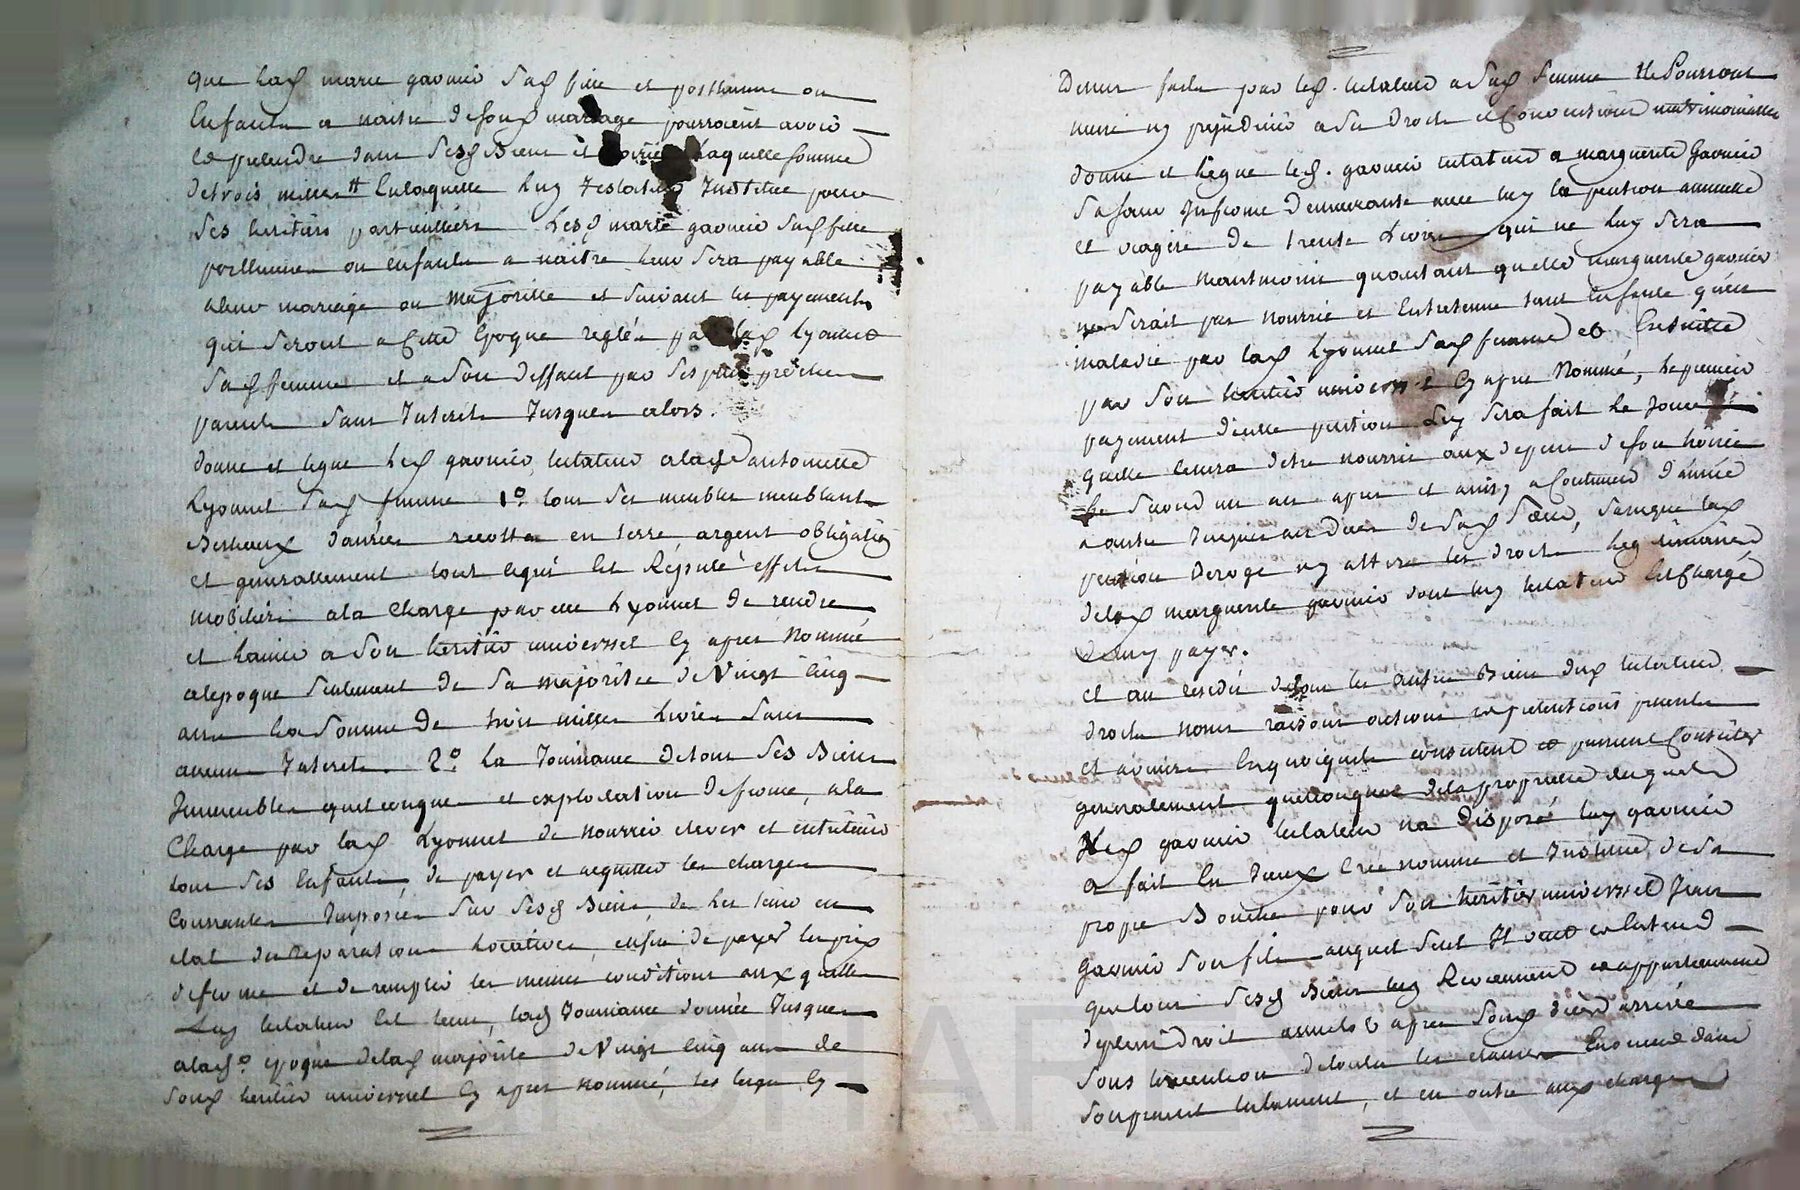 que lad marie gavinio sad fille et posthumes ou
Enfants a naitre desond mariage pourroient avoir
et pretendre dans sesd Biens et hoirie laquelle somme
detrois milles ₶ Enlaquelle luy Testateur Institue pour
ses heritiers particuilliers lesd marie gavinio sad fille
posthumes ou enfants a naitre leur sera payable
aleur mariage ou majorite et suivant les payements
qui seront a Cette Epoque reglés par lad Lyonnet
sad femme et a son deffaut par ses plus proches
parents sans Interets Jusques alors.
donne et legue led gavinio testateur alad antoinette
Lyonnet sad femme 1o tous ses meubles meublants
Bestiaux danrées recoltes en terre argent obligations
et generallement tout cequi Est Réputé effets
mobiliers ala charge par elle Lyonnet de rendre
et a son heritier universsel Cy apres Nommé
alepoque seulement de sa majoritée de Vingt Cinq
ans la somme de trois milles livres sans
aucun Interets. 2o la Jouissance detous ses Biens
Immeubles quelconques et exploitation deferme, ala
Charge par lad Lyonnet de nourrir elever et entretenir
tous ses Enfants, de payer et acquitter les charges
Courrantes Imposées sur sesd Biens, de les tenir en
etat de reparations locatives, enfin de payer les prix
deferme et de remplir les memes conditions auxquelles
Luy testateur Est tenu, lad Jouissance donnée Jusques
alad. epoque delad majorite de Vingt Cinq ans de
sond heritier universsel Cy apres nommé, les legs Cy
Dessus faits par led. testateur a sad femme Ne Pourront
nuire ny prejudicier a ses Droits et Conventions matrimonialles
donne et legue led. gavinio testateur a marguerite Gavinio
sa sœur Infirme demeurante avec luy la pention annuelle
et viagere de trente Livres qui ne luy sera
payable neantmoins quautant quelle marguerite gavinio
ne serait pas nourrie et Entretenue tant Enfante quen
maladie par lad Lyonnet sad femme et Ensuitte
par son heritier universel Cy apres Nommé, le premier
payement decette pention luy sera fait le Jour
quelle cessera detre nourrie aux depens deson hoirie
le second un an apres et ainsy a Continuer dannée
a autre Jusques au Deces de sad sœur, sans que lad
pention Deroge ny altere les droits legitimaires
delad marguerite gavinio dont luy testateur Est Chargé
De luy payer.
et au residu detous les autres Biens dud testateur
droits noms raisons actions et pretentions presents
et avenirs Enquoiquils consistent et puissent Consister
generalement quelconques dela propriété desquels
Iled gavinio testateur na disposé luy gavinio
a fait En Iceux Crée nomme et Institue de sa
propre Bouche pour son heritier universsel Jean
gavinio son fils auquel seul Il veut et entend
que tous sesd Biens luy Reviennent et appartiennent
deplein Droit apres sond deces arrivée
sous lexecution detoutes les clauses Enoncées dans
son present testament, et en outre aux charges